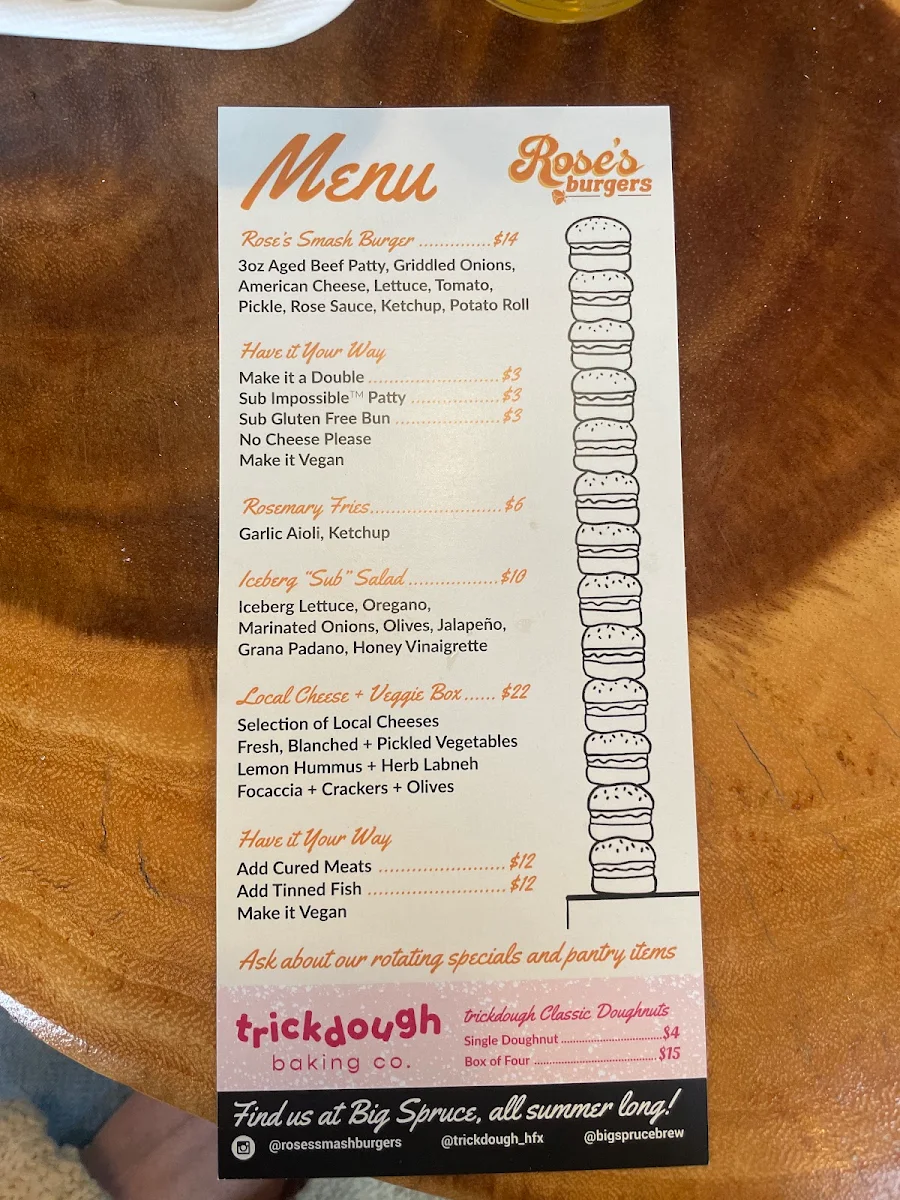 Menu
Rose's
burgers
Rose's Smash Burger ..............$14
3oz Aged Beef Patty, Griddled Onions,
American Cheese, Lettuce, Tomato,
Pickle, Rose Sauce, Ketchup, Potato Roll
Have it Your Way
Make it a Double ..........................$3
Sub Impossible™ Patty .................$3
Sub Gluten Free Bun .....................$3
No Cheese Please
Make it Vegan
Rosemary Fries.........................$6
Garlic Aioli, Ketchup
Iceberg "Sub" Salad.................$10
Iceberg Lettuce, Oregano,
Marinated Onions, Olives, Jalapeño,
Grana Padano, Honey Vinaigrette
Local Cheese + Veggie Box...... $22
Selection of Local Cheeses
Fresh, Blanched + Pickled Vegetables
Lemon Hummus + Herb Labneh
Focaccia + Crackers + Olives
Have it Your Way
Add Cured Meats ........................ $12
Add Tinned Fish .......................... $12
Make it Vegan
Ask about our rotating specials and pantry items
trickdough
baking co.
trickdough Classic Doughnuts
Single Doughnut ...............................$4
Box of Four .....................................$15
Find us at Big Spruce, all summer long!
@rosessmashburgers @trickdough_hfx @bigsprucebrew